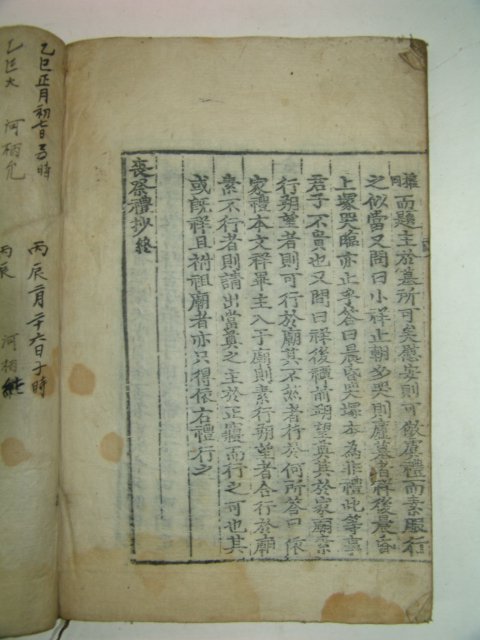 權而題主於墓所可矣應安則可做虞禮而素服行
之似當又問曰小祥止朝夕哭則廬墓者祥後晨昏
上塚哭臨亦止乎答曰晨昏哭塚本為非禮此等事
君子不貴也又問曰祥後禫前朔望奠其於家廟素
行朔望者則可行於廟其不然者行於何所答曰依
家禮本文祥畢主入于廟則素行朔望者合行於廟
素不行者則請出當奠之主於正寢而行之可也其
或旣祥且祔祖廟者亦只得依右禮行之
喪祭禮抄終
丙辰二月二十六日子時
乙巳正月初七日 時
丙辰 河栢
乙巳 河栢允